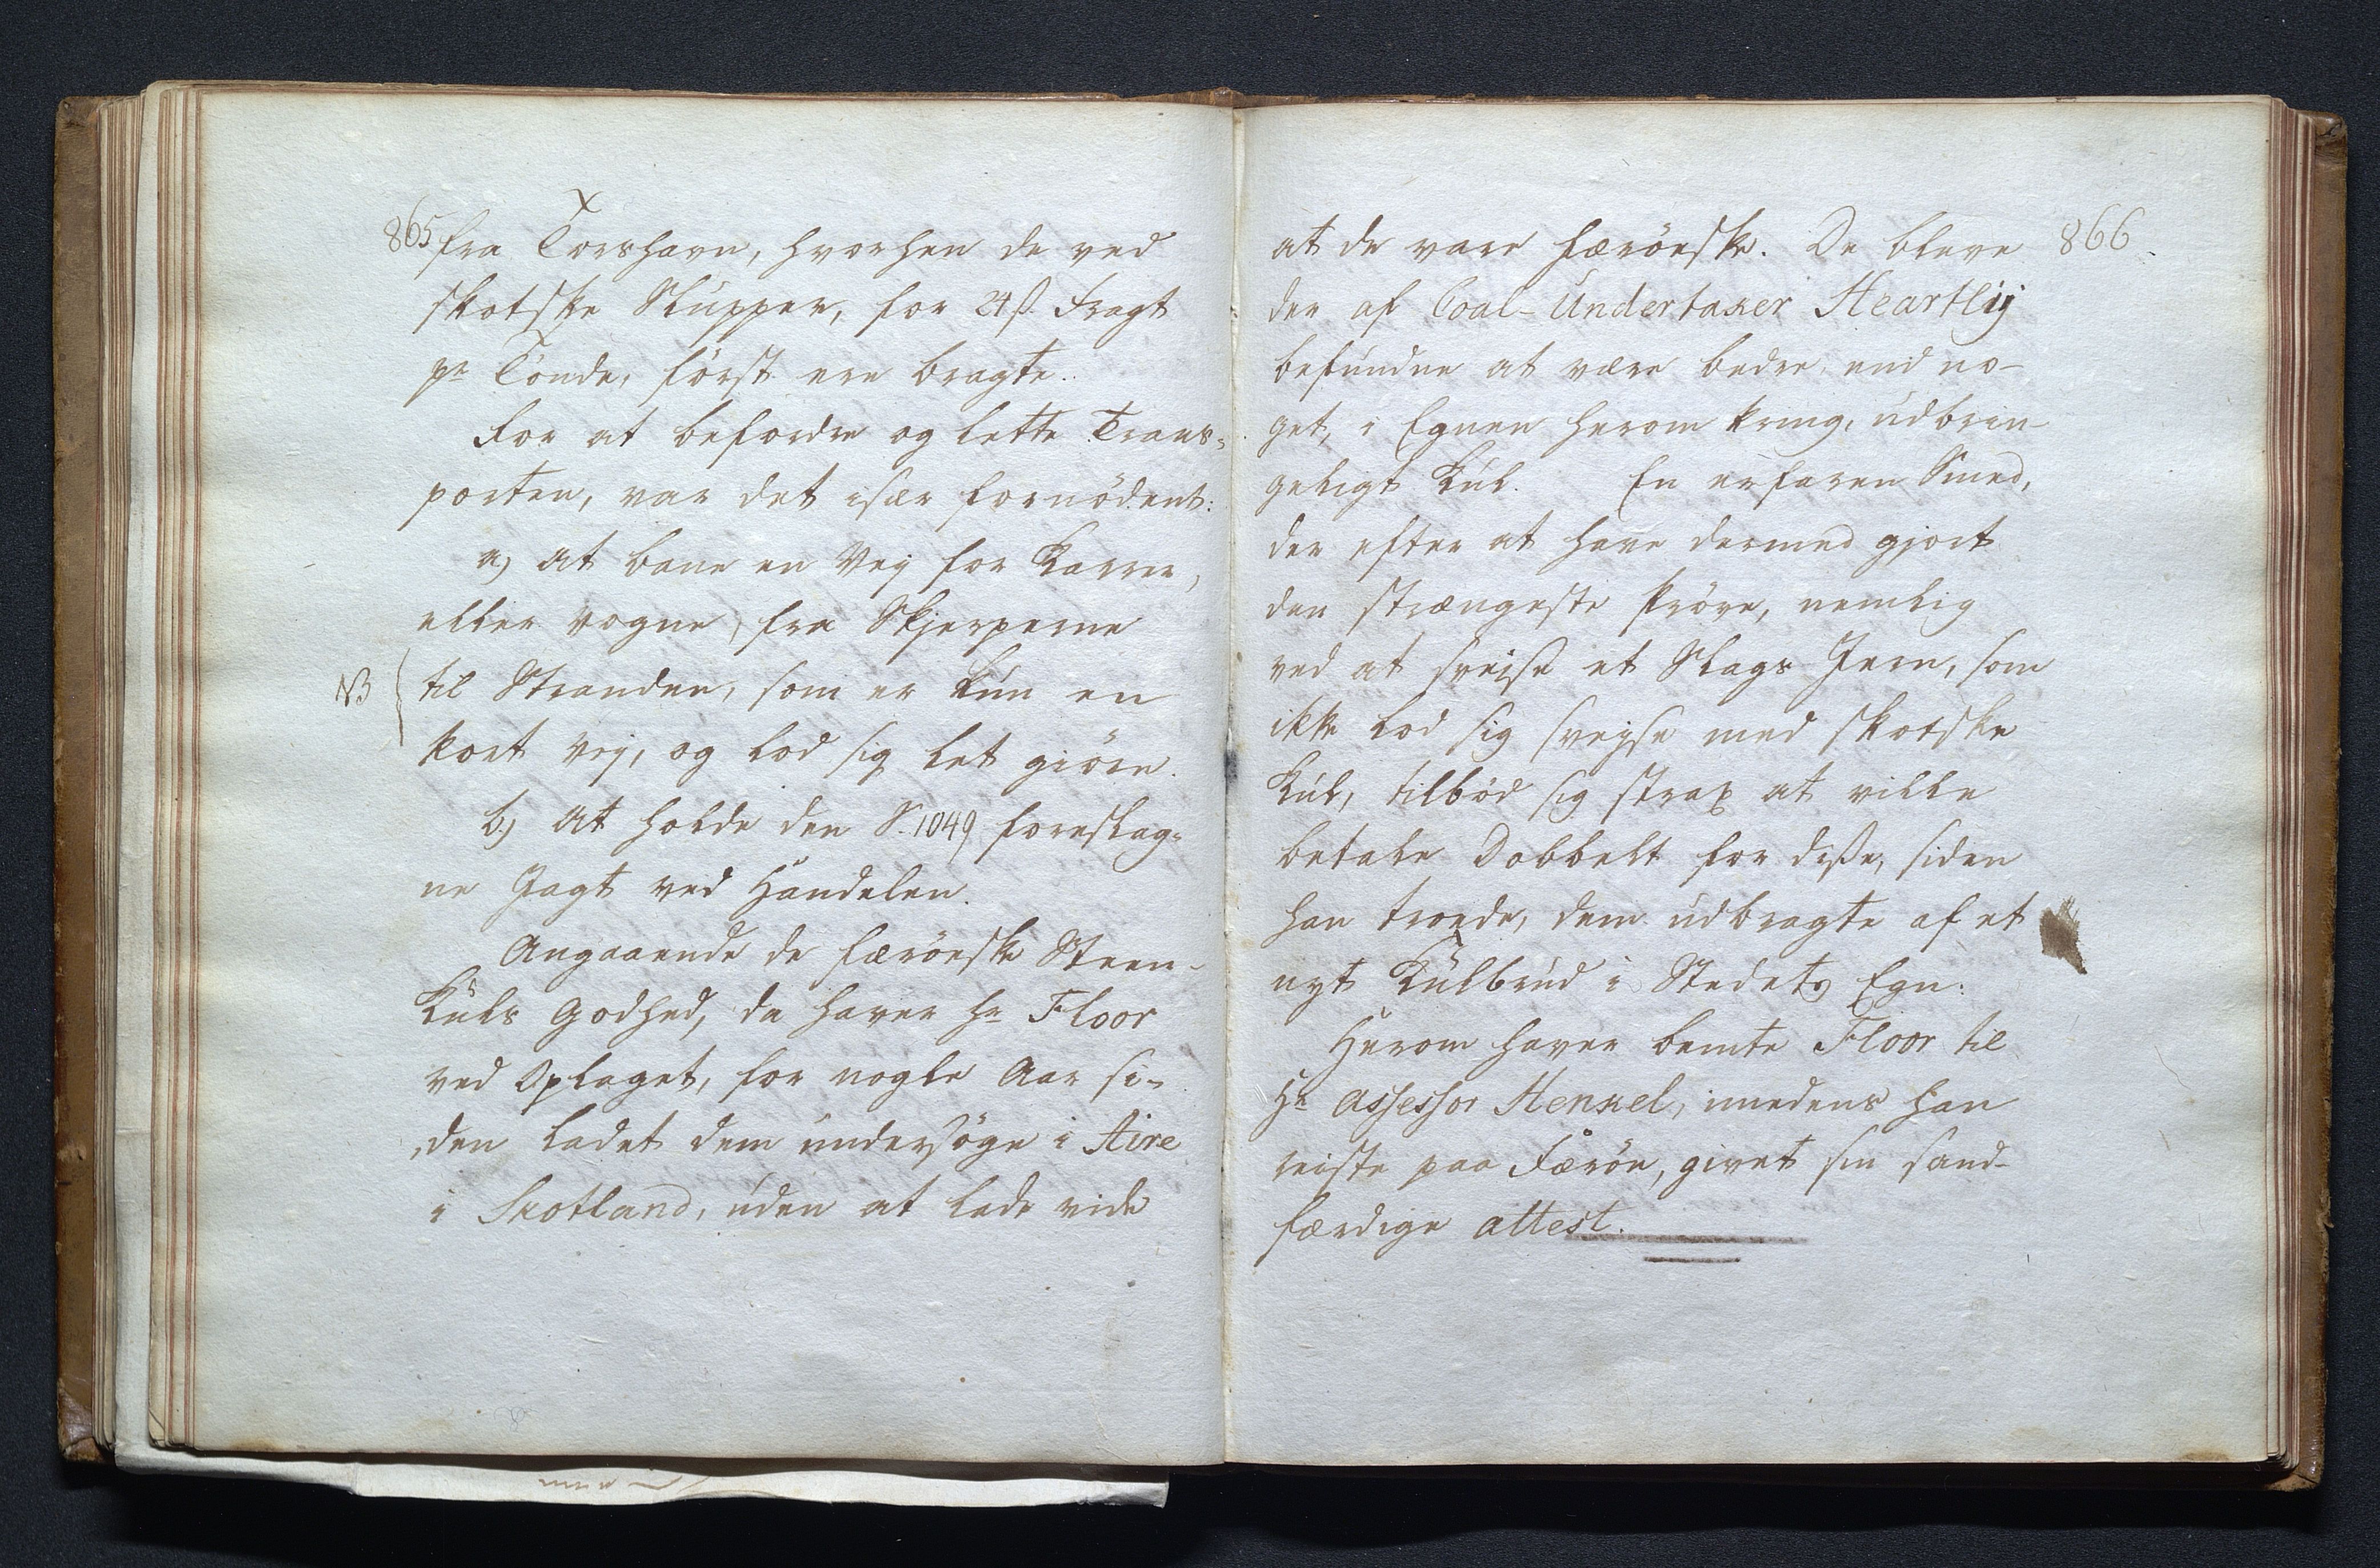 865 fra Torshavn, hvorhen de ved
skotske Slupper, for 24 ß. Fragt
pr Tönde, först ere bragte.
For at befordre og lette Trans-
porten, var det især fornödent:
a) at bane en Vej for Karrer,
eller Vogne, fra Skjerperne
NB til Stranden, som er kun en
kort Vej, og lod sig let giöre.
b.) at holde den S. 1049 foreslag-
ne Jagt ved Handelen.
Angaaende de færöeske Steen-
Kuls Godhed, da haver Hr Floor
ved Oplaget, for nogle Aar si-
den ladet dem undersöge i Aire
i Skotland, uden at lade vide
at de vare færöeske. De bleve 866.
der af Coal-Undertaker Heartlij
befundne at være bedre end no-
get, i Egnen herom kring, udbrin-
geligt Kul. En erfaren Smed,
der efter at have dermed gjort
den strængeste Pröve, nemlig
ved at svejse et Slags Jern, som
ikke lod sig svejse med skotske
Kul, tilböd sig strax at ville
betale Dobbelt for diße, siden
han troede, dem udbragte af et
nyt Kulbrud i Stedets Egn.
Herom haver bemte Floor til
Hr Assessor Henkel, imedens han
reiste paa Færöe, givet sin sand-
færdige Attest.